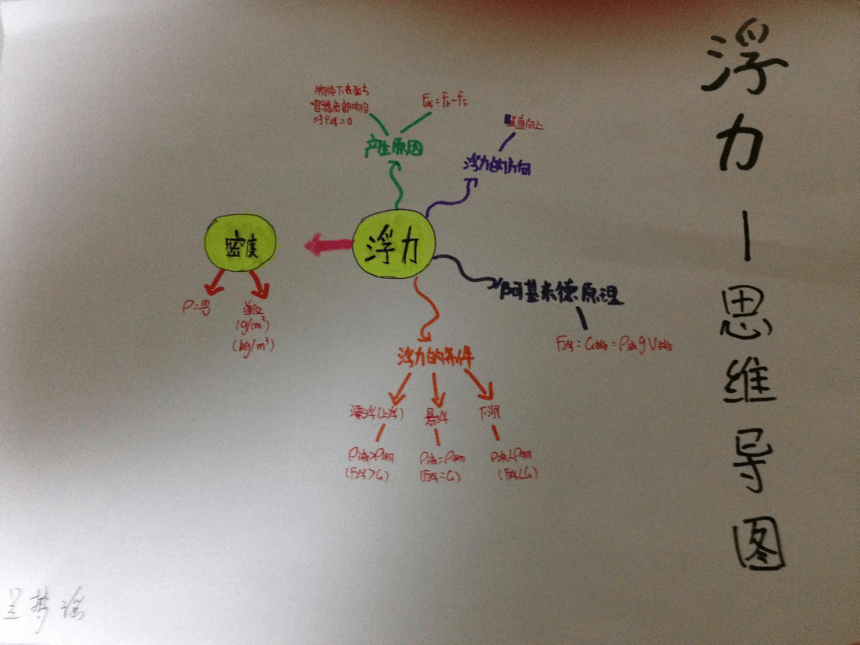 浮力—思维导图
物体下表面与
容器底部吻合
时F浮=0
F浮=F下-F上
产生原因
竖直向上
浮力的方向
密度
浮力
ρ=m/V
单位
(g/cm³)
(kg/m³)
阿基米德原理
F浮=G排=ρ液gV排
浮力的条件
漂浮(上浮)
悬浮
下沉
ρ液>ρ物
(F浮>G)
ρ液=ρ物
(F浮=G)
ρ液<ρ物
(F浮<G)